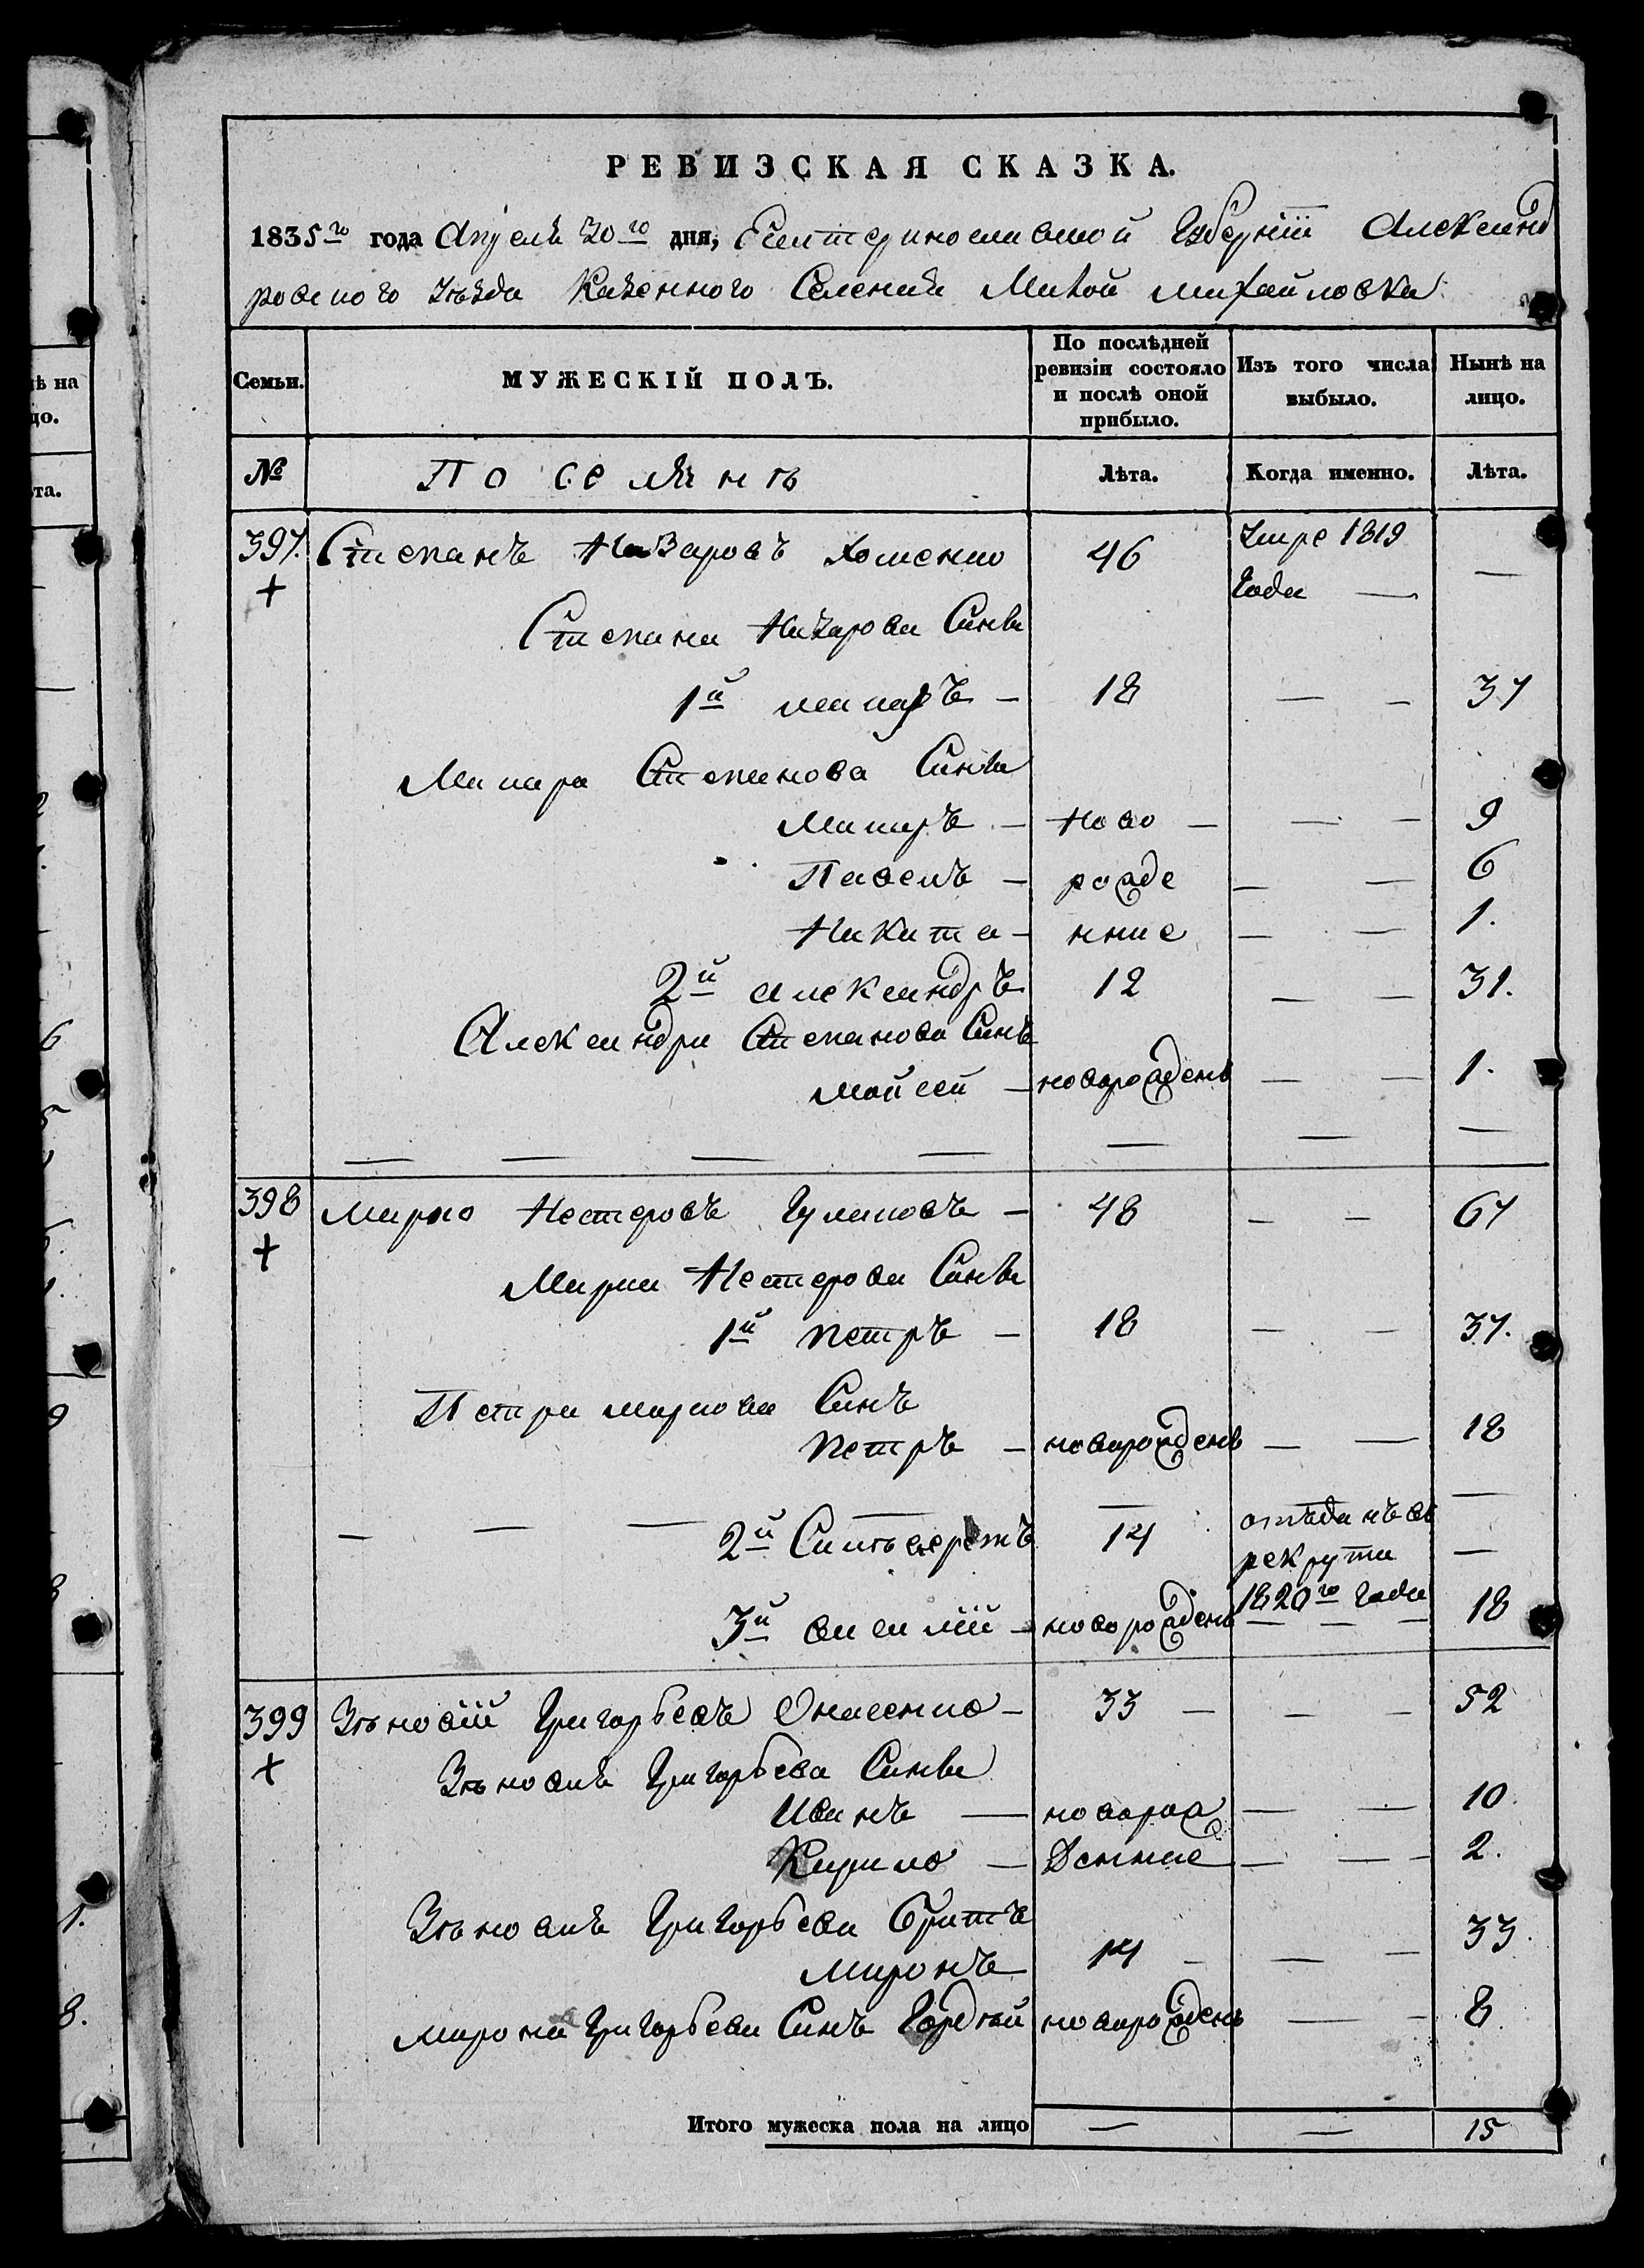 РЕВИЗСКАЯ СКАЗКА.
1835го года Апреля 30го дня, Екатеринославской Губернiи Александ
ровского Уѣзда Казенного Селения Малой михайловки
Семьи. МУЖЕСКIЙ ПОЛЪ. По послѣдней ревизiи состояло и послѣ оной прибыло. Изъ того числа выбыло. Нынѣ на лицо.
№ Поселянѣ Лѣта. Когда именно. Лѣта.
397. Степанъ Назаровъ Хоменко 46 умре 1819 —
года —
Степана Назарова Сини
1й макаръ — 18 — — 37
Макара Степанова Сини
Макаръ — ново — — — 9
Павелъ — рожде — — 6
Никита — нние — — 1.
2й александръ 12 — — 31.
Александра Степанова Синъ
мойсей — новорожденъ — — 1.
— — — — — — —
398 марко Нестеровъ — 48 — — 67
Марка Нестерова Сини
1й петръ — 18 — — 37.
Петра маркова Синъ
петръ — новорожденъ — — 18
— — — — — —
2й 14 отъданъ в —
рекрути
1820го года
3й василiй — новорожденъ — — — 18
399 Зѣновiй Григорьевъ Онасенко — 33 — — — 52
Зѣновия Григорьева Сини
Иванъ — новорож — — 10
Кирило — денние — — — 2.
Зѣновия Григорьева братъ
миронъ 14 — — — 33.
мирона Григорьева Синъ Гордѣй новорожденъ — — 8
Итого мужеска пола на лицо — — 15
ѣ на
цо.
та.